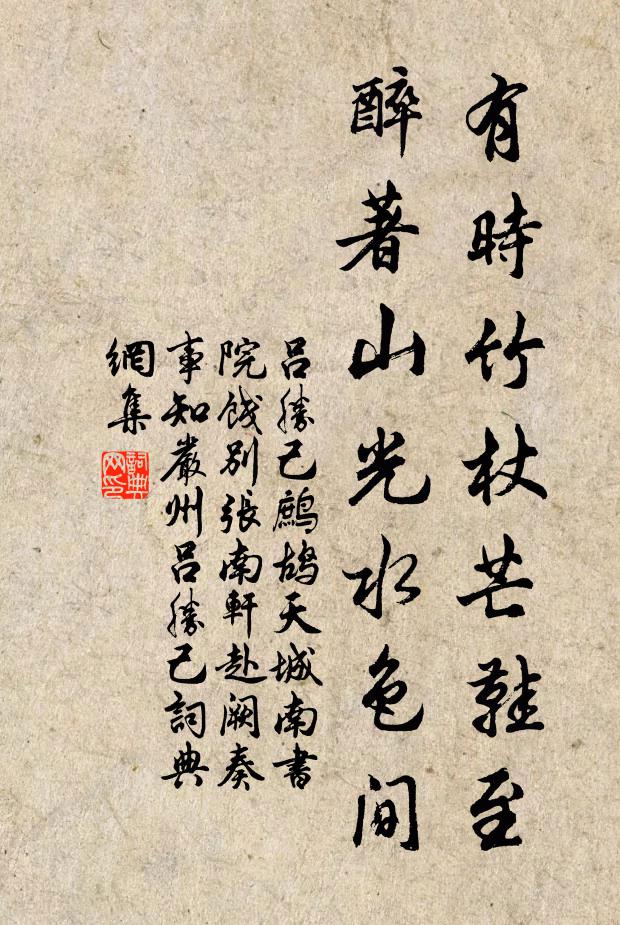 有時竹杖芒鞋至
醉著山光水色間
呂勝己鷓鴣天城南書
院餞別張南軒赴闕奏
事知嚴州呂勝己詞典
網集
詞典
网印